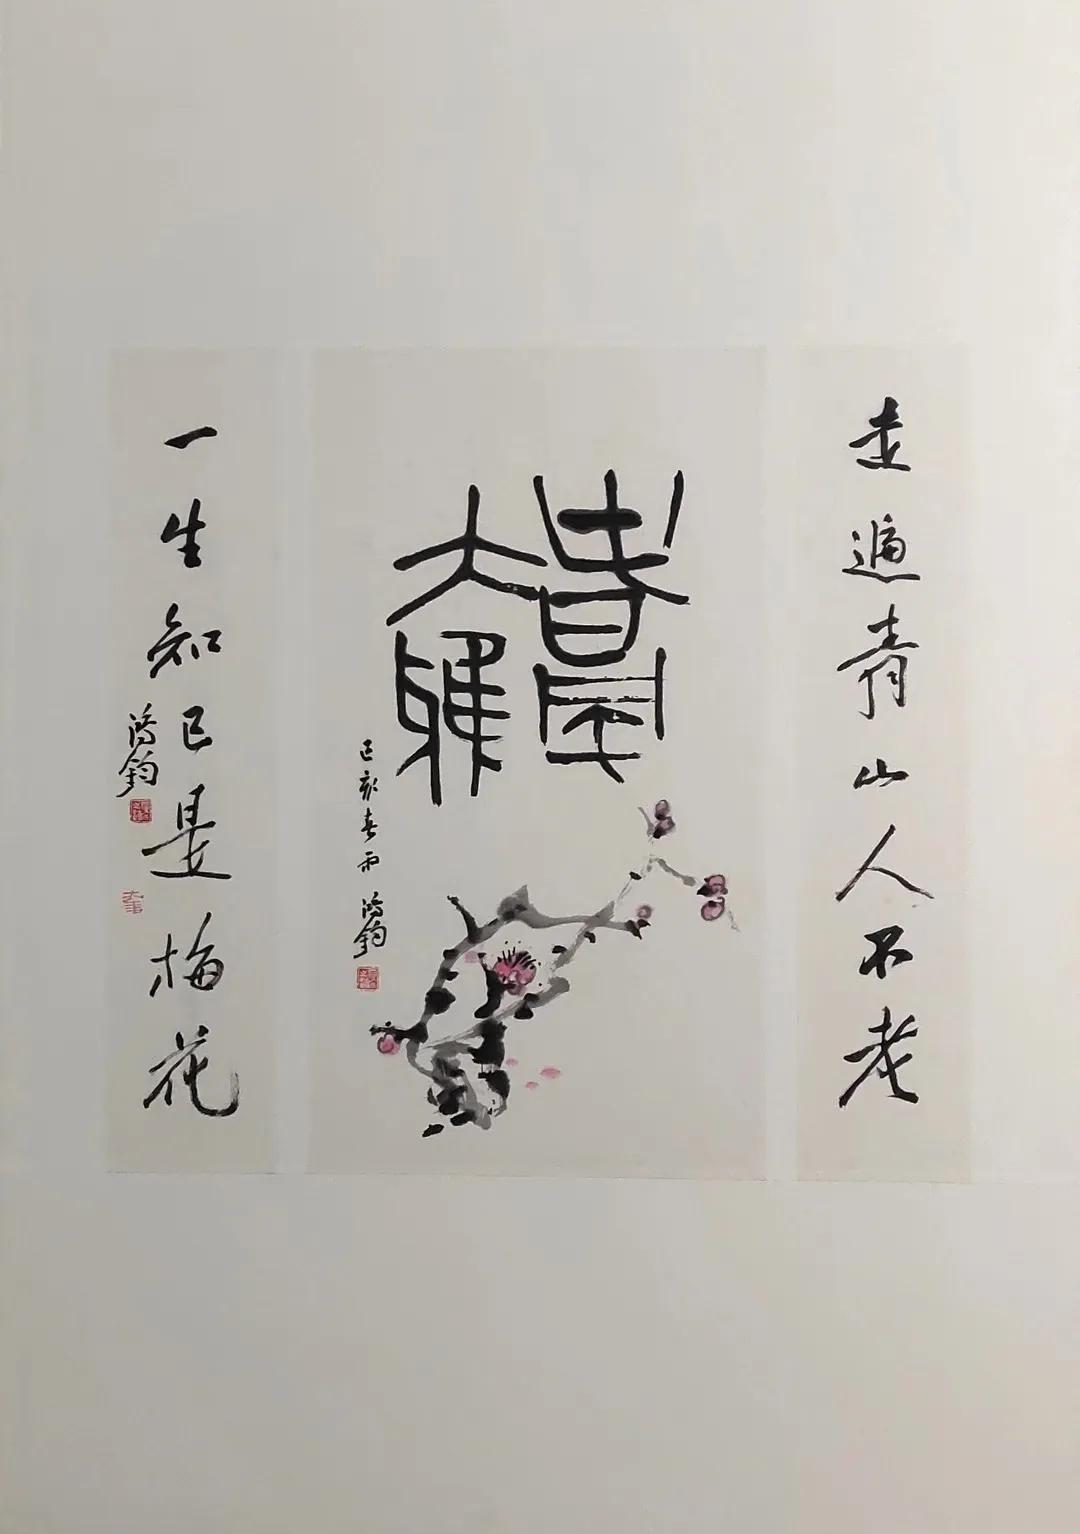 走遍青山人不老
春風
大雅
己亥春雨 鴻鈞
一生知己是梅花
鴻鈞